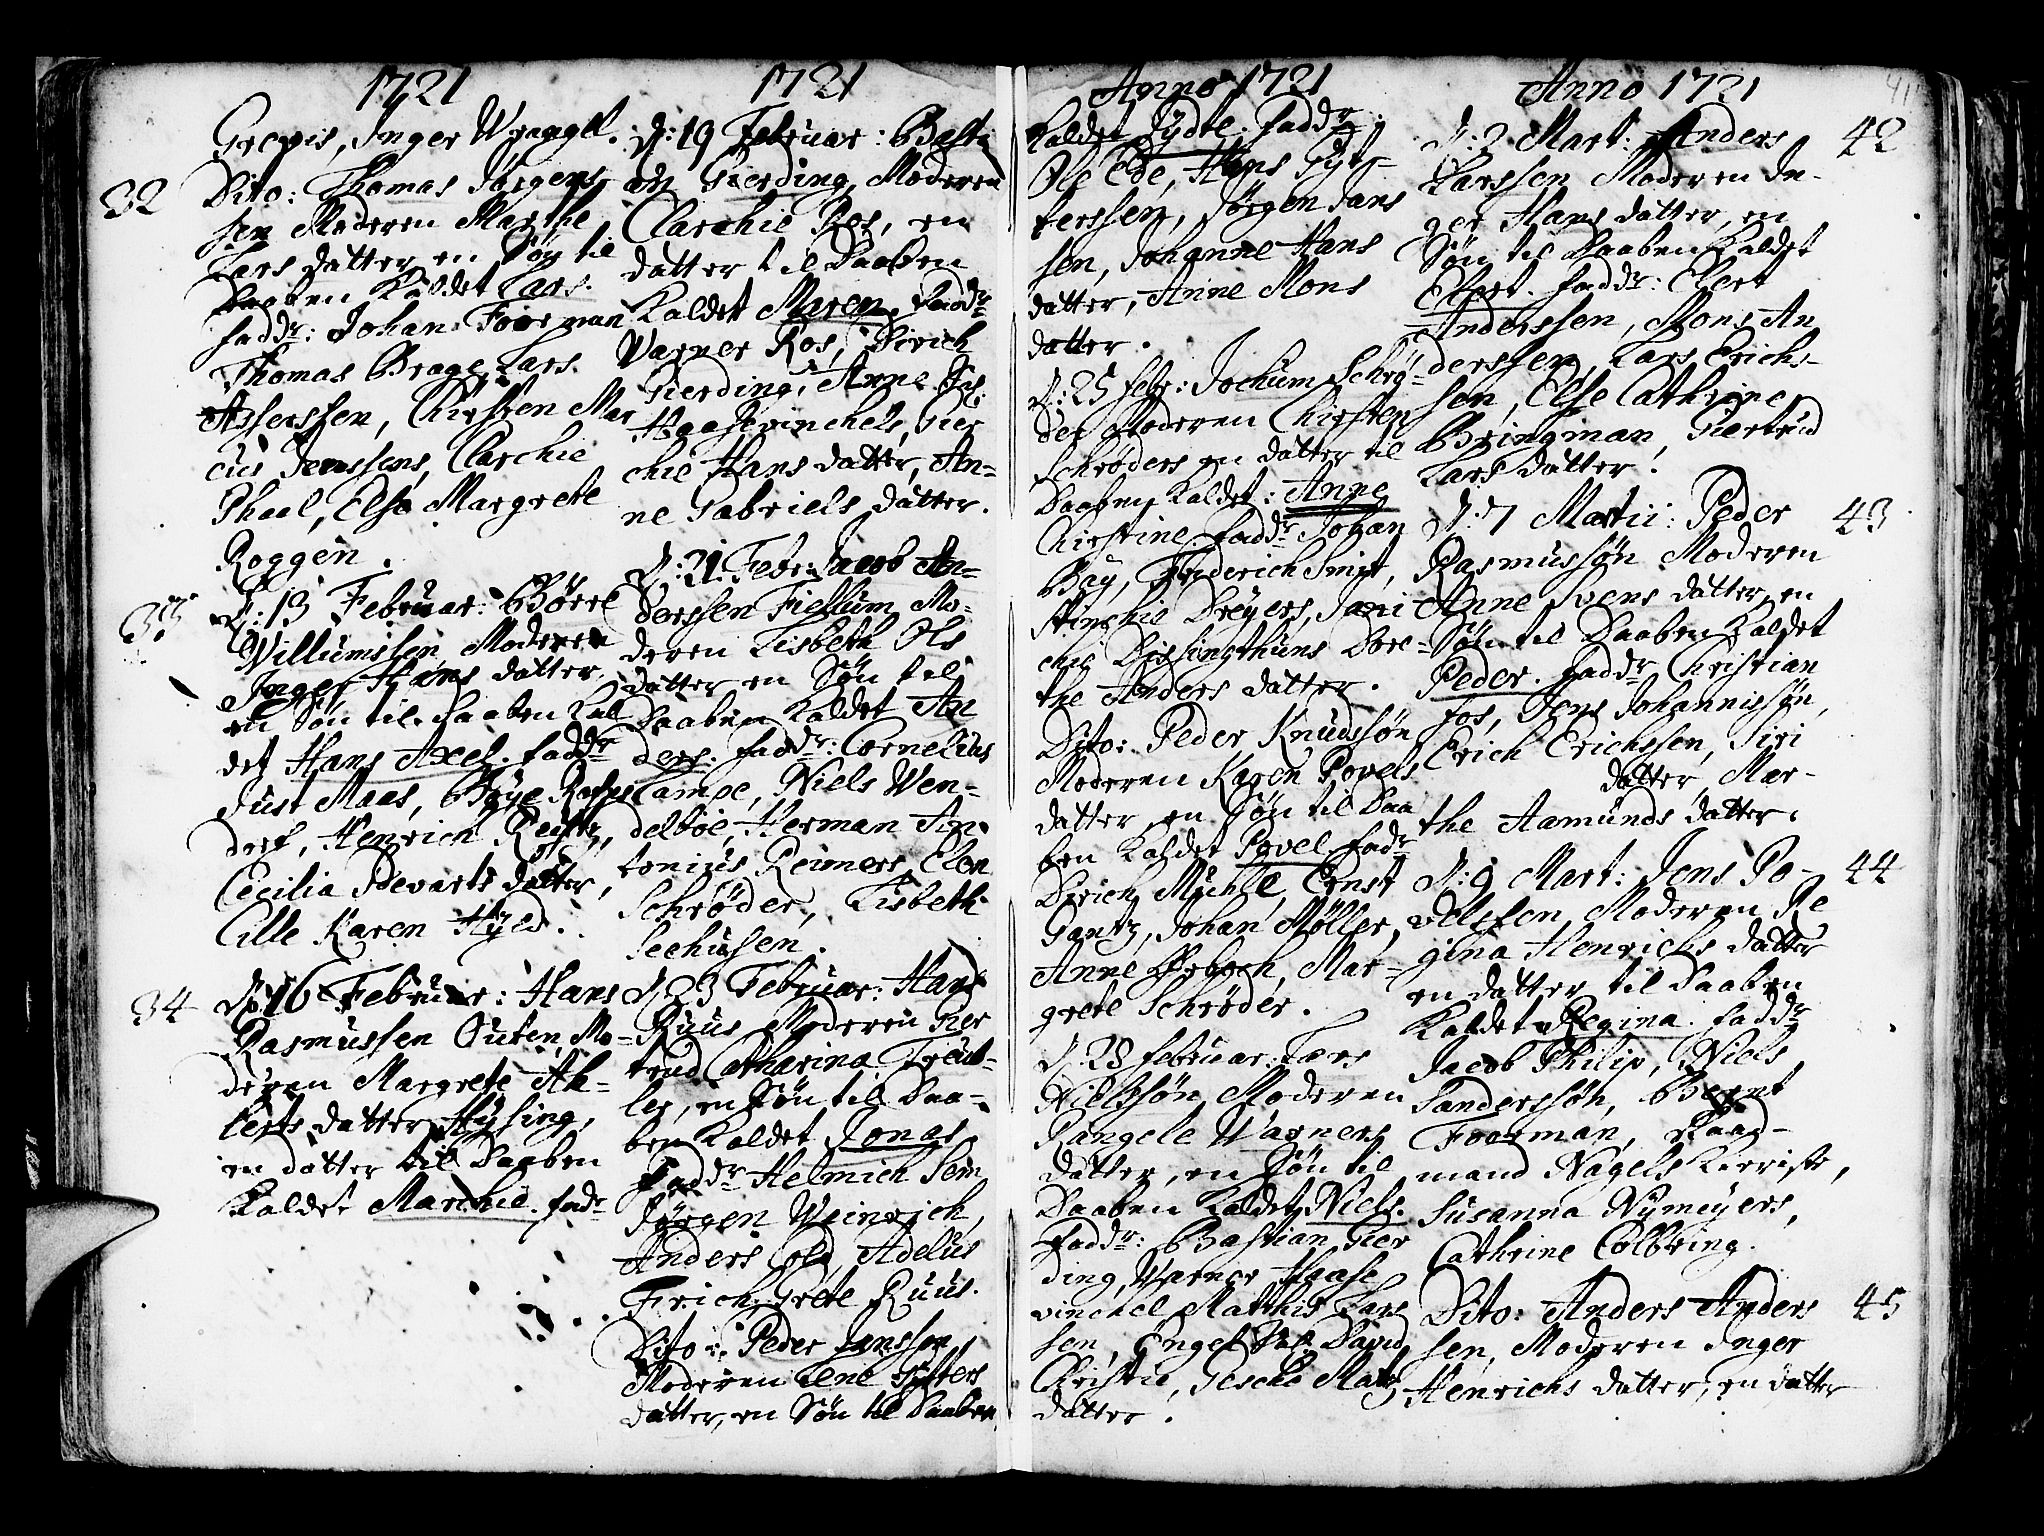 1721
Grevis, Inger Wrangel.
32 Dito: Thomas Jørgens
sen Moderen Marthe
Lars datter en Søn til
Daaben Kaldet Lars.
fadd: Johan Foorman
Thomas Brage, Lars
Asserssen, Kirsten Mar
cus Jenssens, Clarchie
Phaal, Else Margrete
Roggen.
33 D: 13 Februar: Børre
Willumssen Moderen
Inger Hans datter,
en Søn til Daaben Kal
det Hans Axel. fadd
Just Maas, Bøye
dorf, Henrich
Cecilia Edevarts datter,
Cille Karen Hyes.
34 D: 16 Februar: Hans
Rasmussen Outen, Mo-
deren Margrete Ah-
lerts datter Hysing,
en datter til Daaben
Kaldet Marchie. fadr
1721
D: 19 Februar: Basti
an Gierding, Moderen
Clarchie Ros, en
datter til Daaben
Kaldet Maren. fadd
Warner Ros, Dirich
Gierding, Anne Sal:
Haasevinchels, Gier
chie Hans datter, An-
ne Gabriels datter.
D: 21 Febr: Jacob An-
derssen Fiellum Mo-
deren Lisbeth Ols
datter en Søn til
Daaben Kaldet An
ders. fadd: Cornelius
Campe, Niels Wen-
delboe, Herman An-
tonius Reimers, Elen
Schrøder, Lisbeth
Seehusen.
D: 23 Februar: Hans
Ruus Moderen Gier
trud Catharina Treut-
ler, en Søn til Daa-
ben Kaldet Jonas
Fadd Helmich Sem
Jørgen Weinrich,
Anders Cold, Adelus
Frich, Grete Ruus.
Dito: Peder Jenssen
Moderen Lene
datter, en Søn til Daaben
Anno 1721
Kaldet Sydte. fadd:
Ole Ede, Hans Gut-
terssen, Jørgen Jans
sen, Johanne Hans
datter, Anne Mons
datter.
D: 25 febr: Jochum Schrø-
der Moderen Kirsten
Schrøders en datter til
Daaben Kaldet: Anne
Christine. fadd Johan
Bøy, Friderich Smit,
Stinchie Dreyers,
Dore-
the Anders datter.
Dito: Peder Knudssøn
Moderen Karen Povels
datter en Søn til Daa
ben Kaldet Povel fadr
Dirich Muhle, Ernst
Gantz, Johan Møller,
Anne Mar-
grete Schrøder.
D: 28 februar: Lars
Nielssøn Moderen
Rangele Warners
datter, en Søn til
Daaben Kaldet Niels.
Fadd: Bastian Gier
ding, Warner Haase
vinchel Matthis Lars
sen, Engel Sal: David
Christie, Gesche Mats
datter.
Anno 1721
41
D: 2 Mart: Anders 42
Larssen Moderen In-
ger Hans datter, en
Søn til Daaben Kaldet
Elert. fadd: Elert
Anderssen, Mons An
derssen, Lars Erichs-
sen, Else Cathrine
Bringman, Giertrud
Lars datter.
D: 7 Martii: Peder 43
Rasmussøn Moderen
Anne Svens datter, en
Søn til Daaben Kaldet
Peder. fadd Christian
Fos, Jens Johannissøn,
Erich Erichssen, Siri
datter, Mar-
the Aamunds datter.
D: 9 Mart: Jens Po- 44
velssen, Moderen Re
gina Henrichs datter
en datter til Daaben
Kaldet Regina. fadd
Jacob Philip, Niels
Sanderssøn, Bernt
Foorman, Raad-
mand Nagels Kieriste,
Susanna Nymeyers,
Cathrine Colbring.
Dito: Anders Anders 45
sen, Moderen Inger
Henrichs datter, en datter